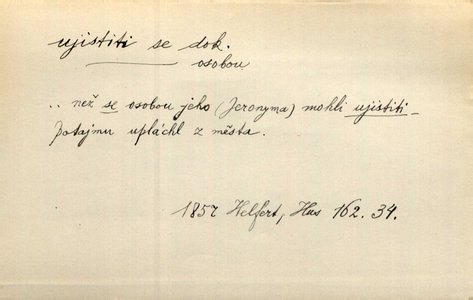 ujistiti se dok.
osobou
.. než se osobou jeho (Jeronyma) mohli ujistiti -
potajmu upláchl z města.
1857 Helfert, Hus 162. 34.